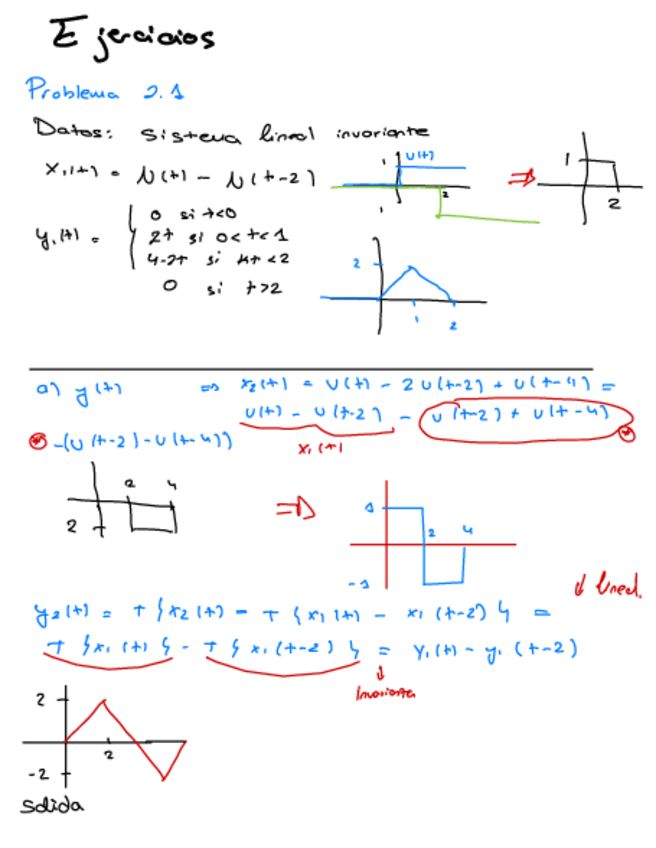 Ejercicios
Problema 2.1
Datos: sistema lineal invariante
x₁(t) = U(t) - U(t-2)
1 U(t)
2
1
⇒
1
2
y₁(t) = { 0 si t<0
2t si 0<t<1
4-2t si 1<t<2
0 si t>2
2
1 2
a) y(t) ⇒ x₂(t) = U(t) - 2U(t-2) + U(t-4) =
U(t) - U(t-2) - U(t-2) + U(t-4)
* -(U(t-2) - U(t-4))
x₁(t)
*
2 4
2
⇒
1
2 4
-1
↓ lineal.
y₂(t) = T{x₂(t) = T{x₁(t) - x₁(t-2)} =
T{x₁(t)} - T{x₁(t-2)} = y₁(t) - y₁(t-2)
↓
Invariante
2
2
-2
Salida